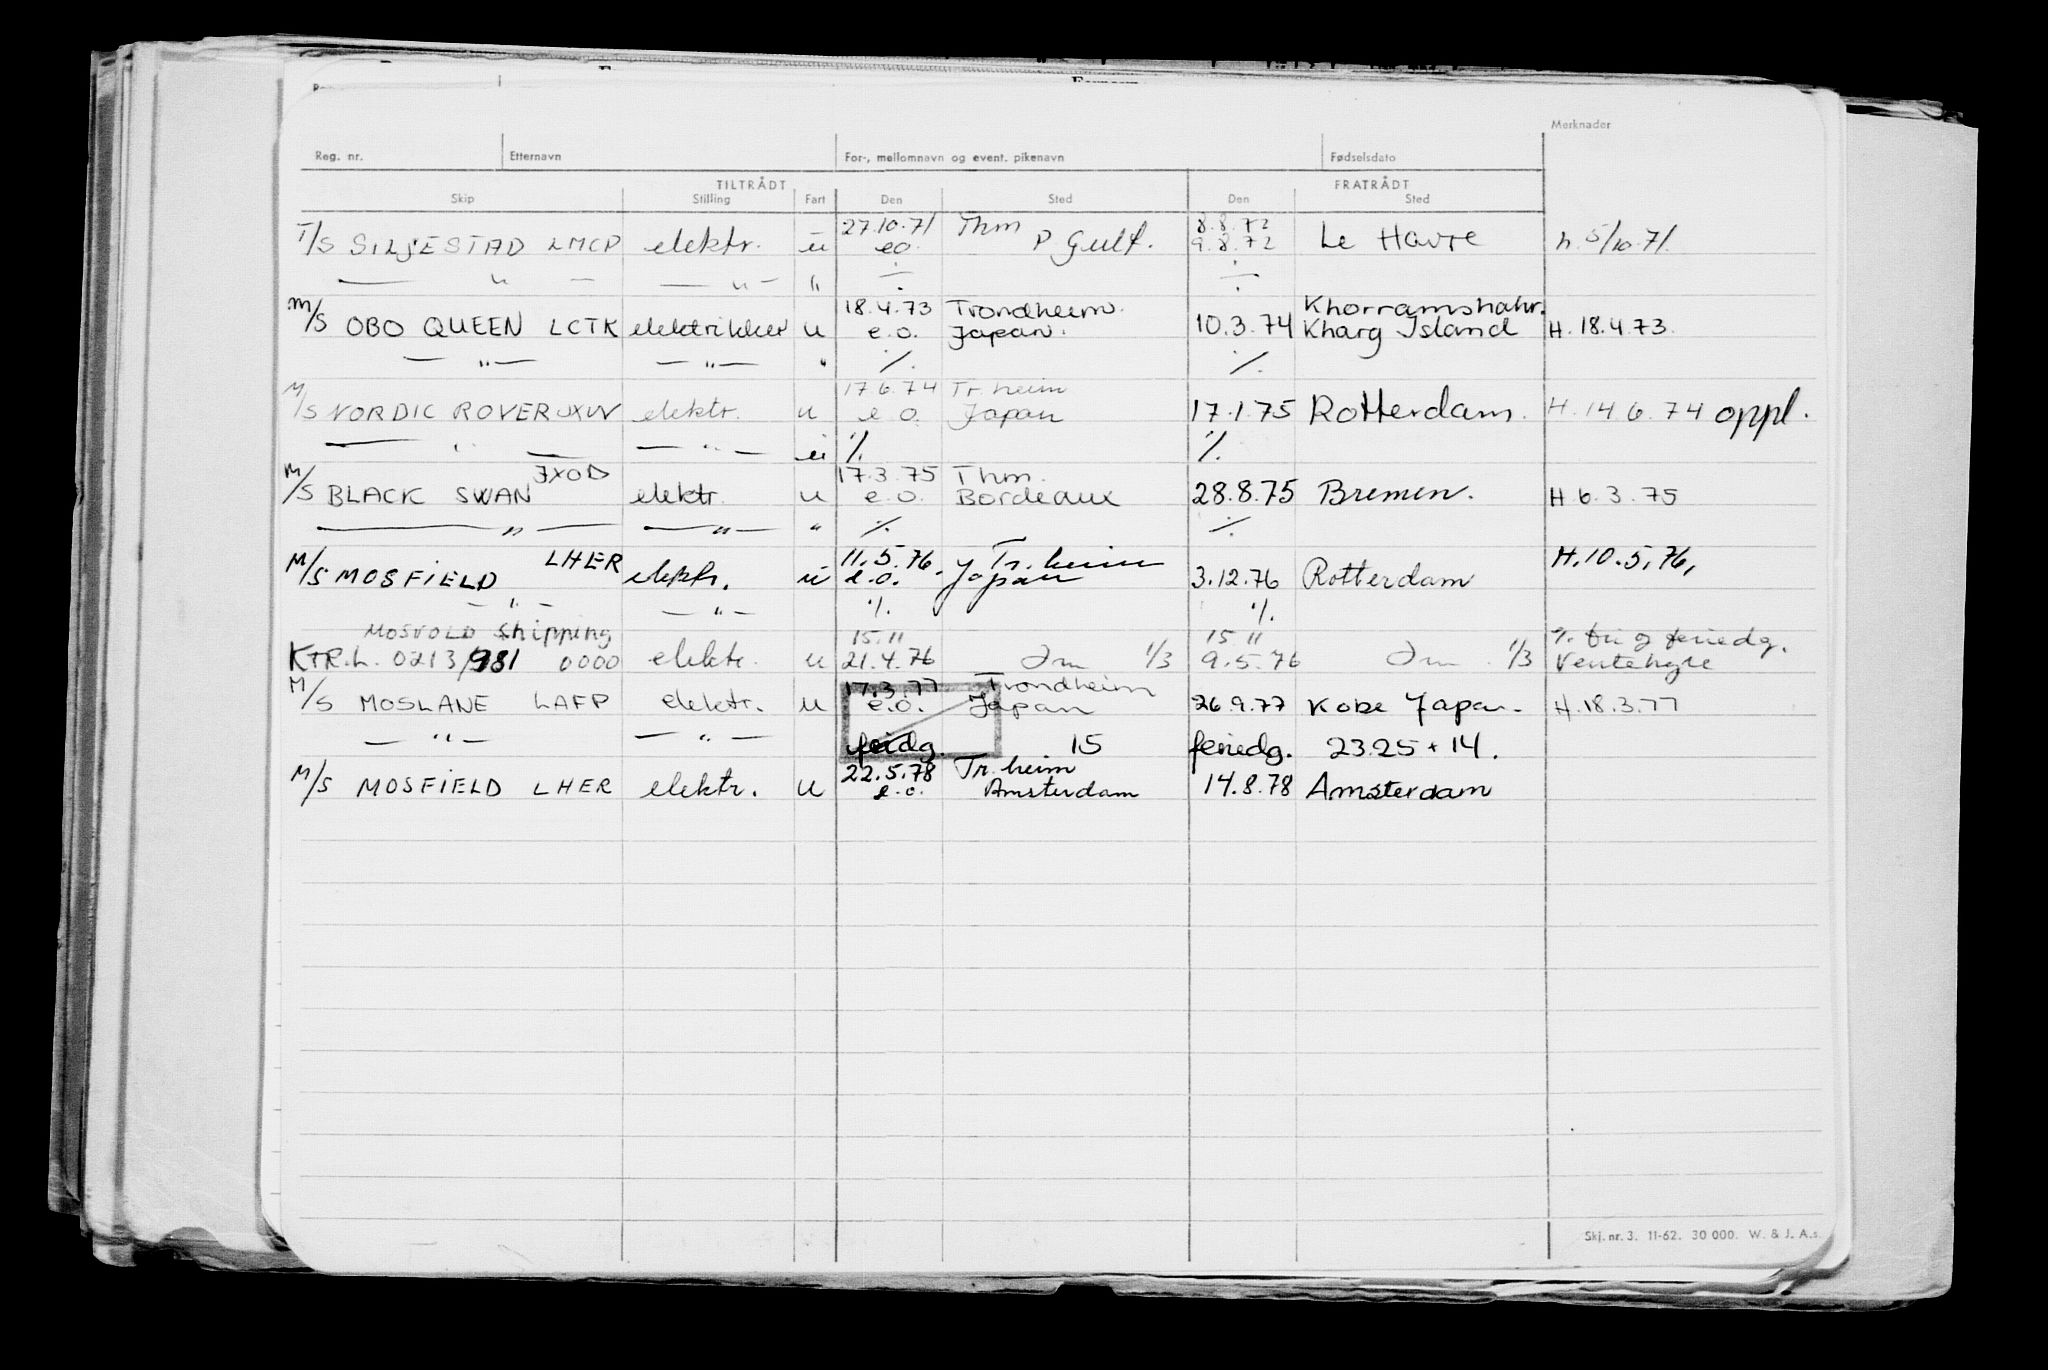 Merknader
Reg. nr. Etternavn For-, mellomnavn og event. pikenavn Fødselsdato
TILTRÅDT FRATRÅDT
Skip Stilling Fart Den Sted Den Sted
27.10.71 Thm 8.8.72
T/S SILJESTAD LMCP elektr. u eo P Gulf. 9.8.72 Le Havre h. 5/10.71.
— " — — " — " ÷ ÷
18.4.73 Trondheim. Khorramshahr.
M/S OBO QUEEN LCTK elektrikker u e.o. Japan. 10.3.74 Kharg Island H. 18.4.73.
— " — — " — " ·/. ·/.
17.6.74 Tr.heim
M/S NORDIC ROVER JXUV elektr. u e.o. Japan 17.1.75 Rotterdam. H. 14.6.74 oppl.
— " — — " — u ·/. ·/.
JXOD 17.3.75 Thm.
M/S BLACK SWAN elektr. u e.o. Bordeaux 28.8.75 Bremen. H 6.3.75
— " — — " — " ·/. ·/.
LHER 11.5.76. Tr.heim H.10.5.76,
M/S MOSFIELD elektr. u e.o. Japan 3.12.76 Rotterdam
— " — — " — ·/. ·/.
MOSVOLD Shipping 15.11 15 11 ·/. fri og feriedg.
KTR.L. 0213/981 0000 elektr. u 21.4.76 1/3 9.5.76 1/3 Ventehyre
17.3.77 Trondheim
M/S MOSLANE LAFP elektr. u e.o. Japan 26.9.77 Kobe Japan. H.18.3.77
— " — — " — feridg. 15 feriedg. 23.25 + 14.
22.5.78 Tr.heim
M/S MOSFIELD LHER elektr. u e.o. Amsterdam 14.8.78 Amsterdam
Skj. nr. 3. 11-62. 30 000. W. & J. A.s.